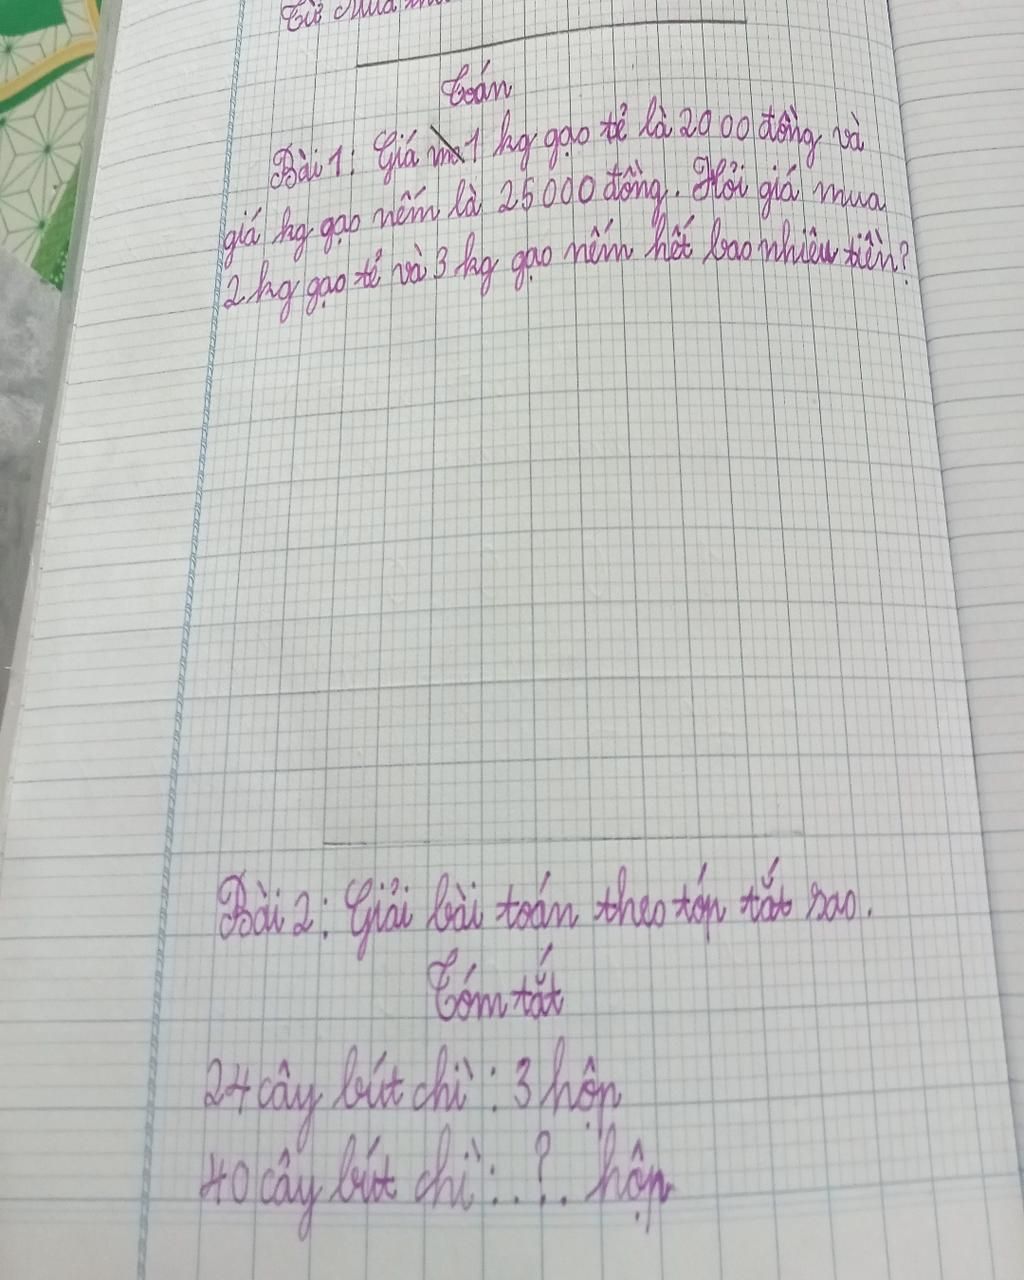 Từ
Toán
Bài 1: Giá 1 kg gạo tẻ là 2000 đồng và
giá kg gạo nếm là 25000 đồng. Hỏi giá mua
2 kg gạo tẻ và 3 kg gạo nếm hết bao nhiêu tiền?
Bài 2: Giải bài toán theo tóp tắt sao.
Tóm tắt
24 cây bút chì: 3 hộp
40 cây bút chì:..?.. hộp